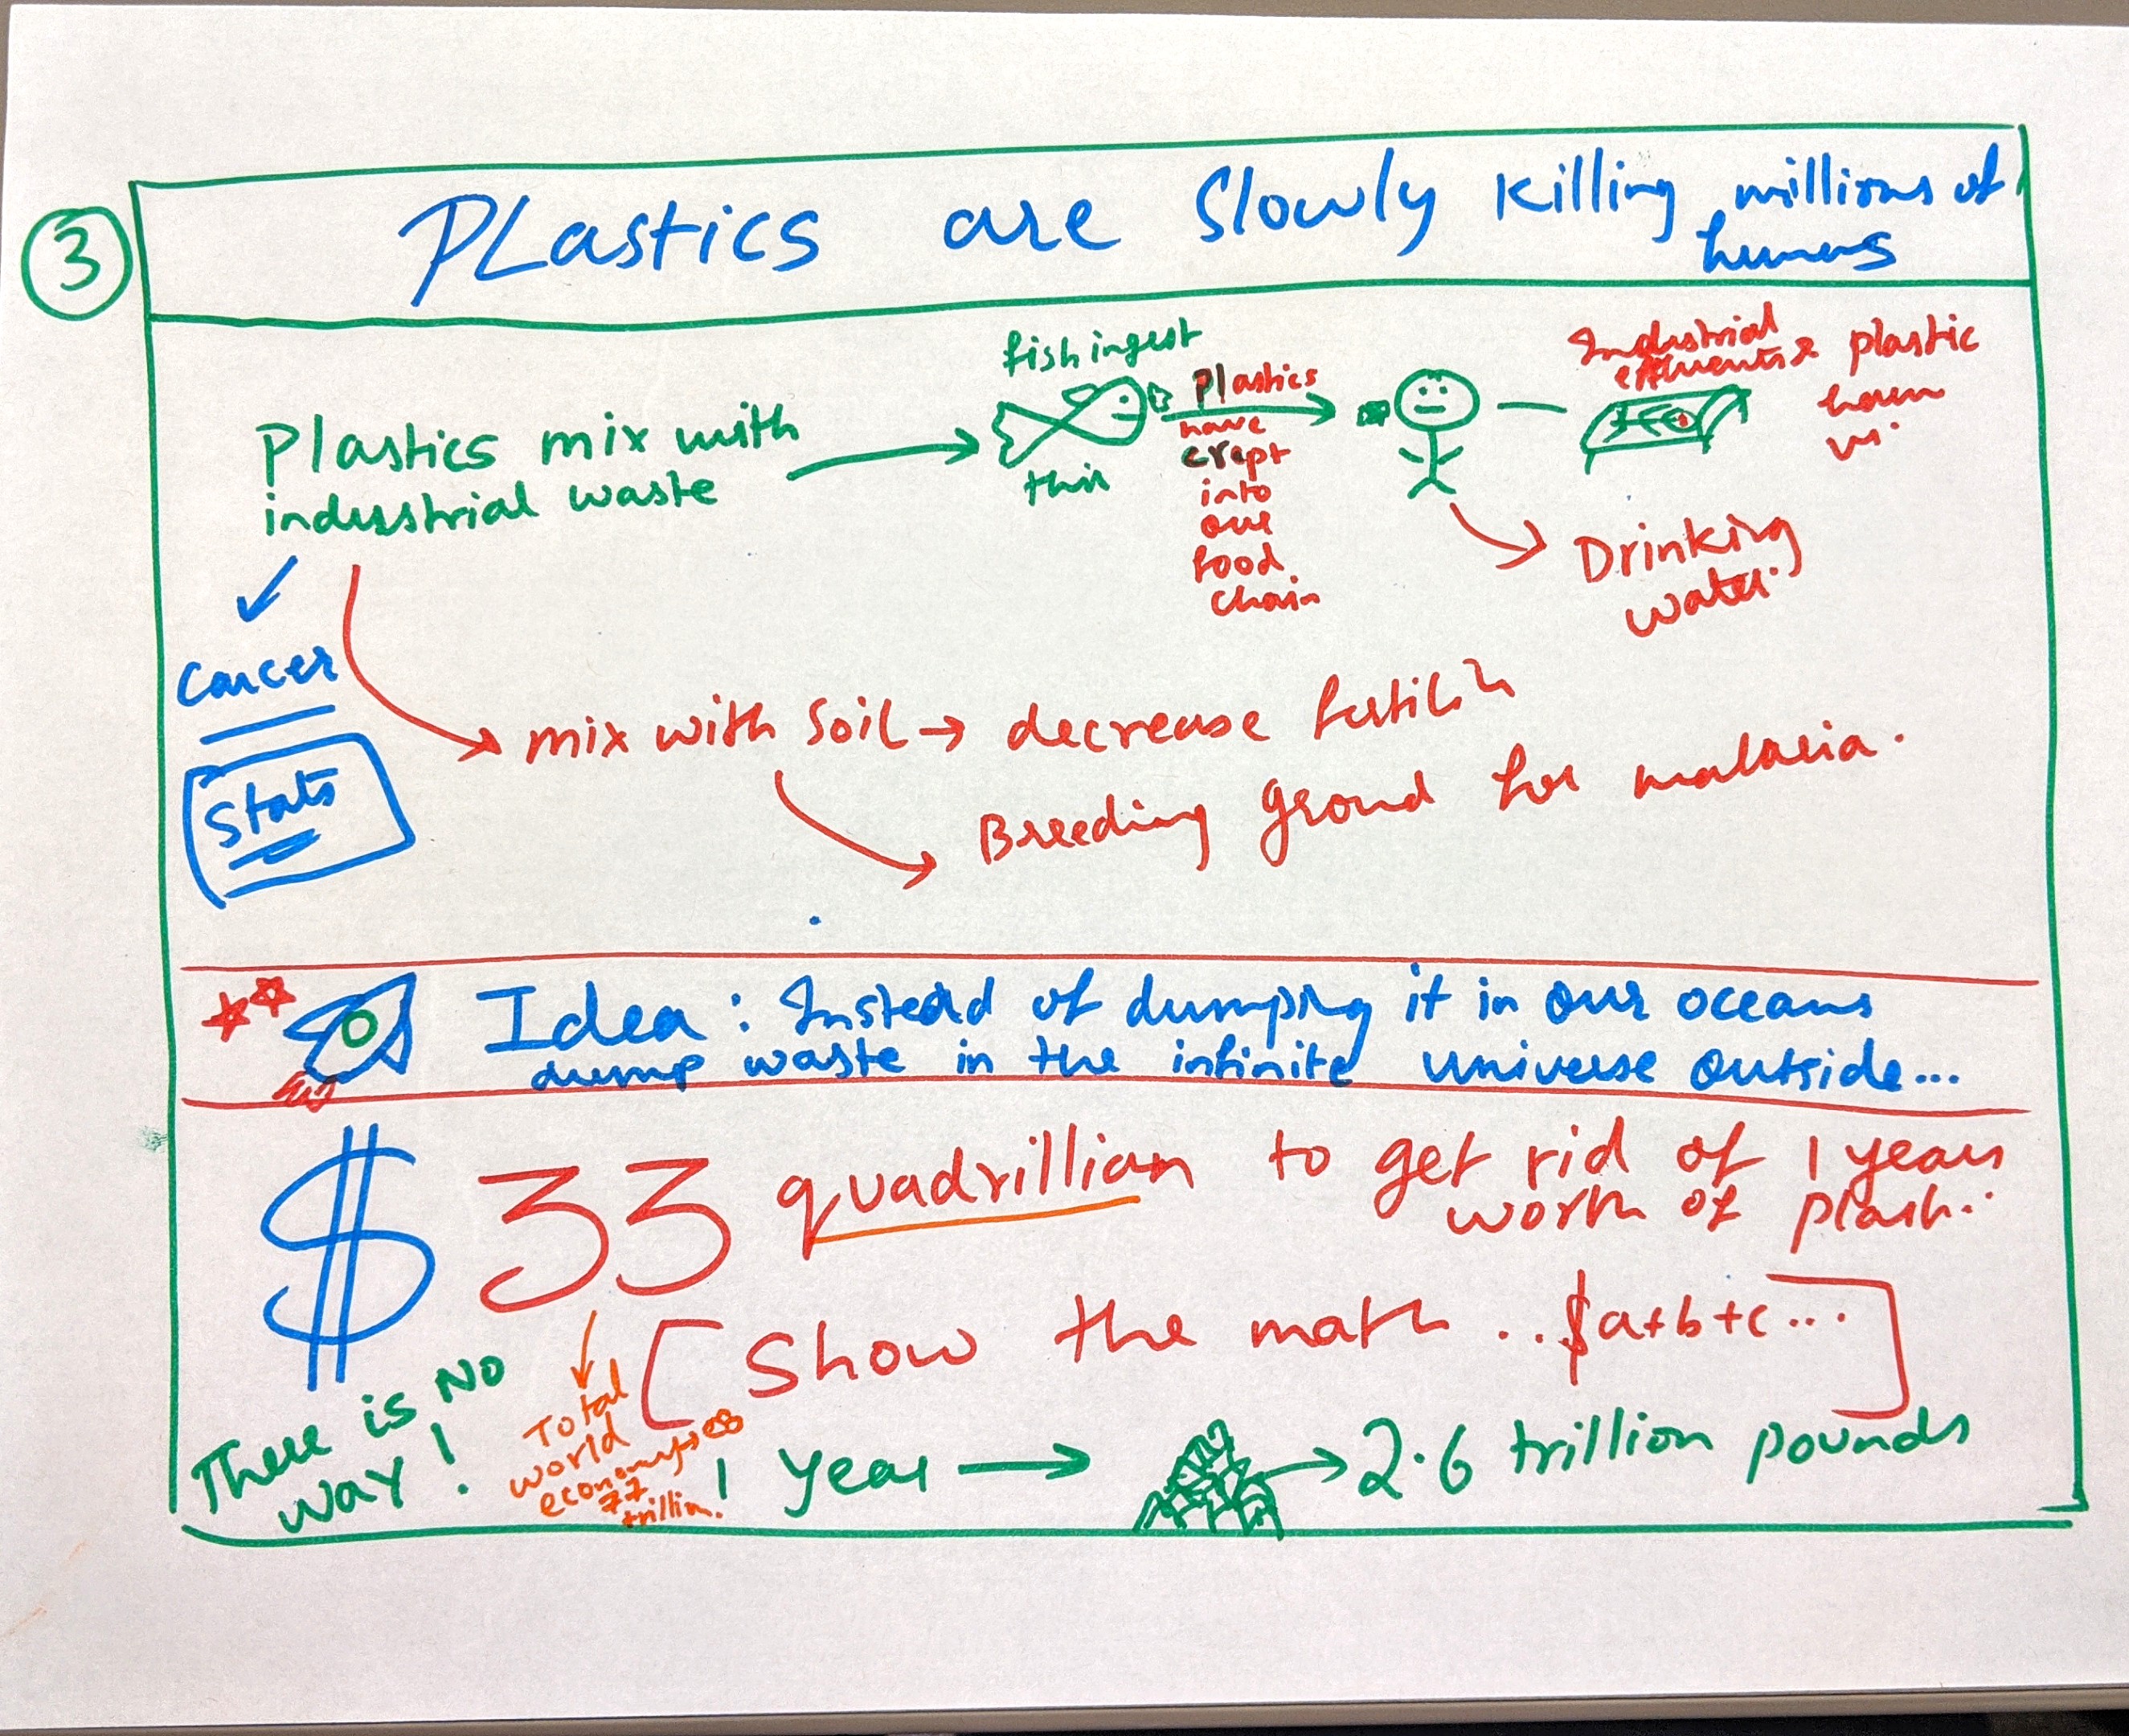 3
PLastics are Slowly Killing millions of
humans
fish ingest
this
Plastics
have
crept
into
our
food
chain
Industrial
effluents & plastic
harm
us.
Plastics mix with
industrial waste
Drinking
water.
Cancer
Stats
mix with Soil → decrease
Breeding ground for malaria.
Idea: Instead of dumping it in our oceans
dump waste in the infinite universe outside...
$33 quadrillian to get rid of 1 years
worth of
[Show the math ..$a+b+c...]
There is NO
WAY!
Total
world
economy
77
trillion.
1 Year → → 2.6 trillion pounds